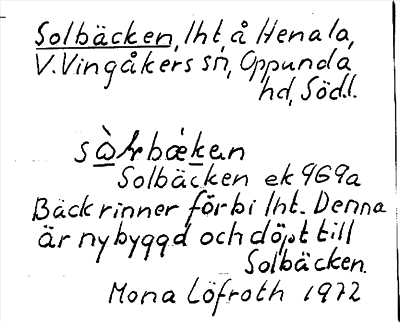 Solbäcken, lht, å Henala,
V. Vingåkers sn, Oppunda
hd, Södl.
sòlrbǽken
Solbäcken ek 9G9a
Bäck rinner förbi lht. Denna
är nybyggd och döpt till
Solbäcken.
Mona Löfroth 1972